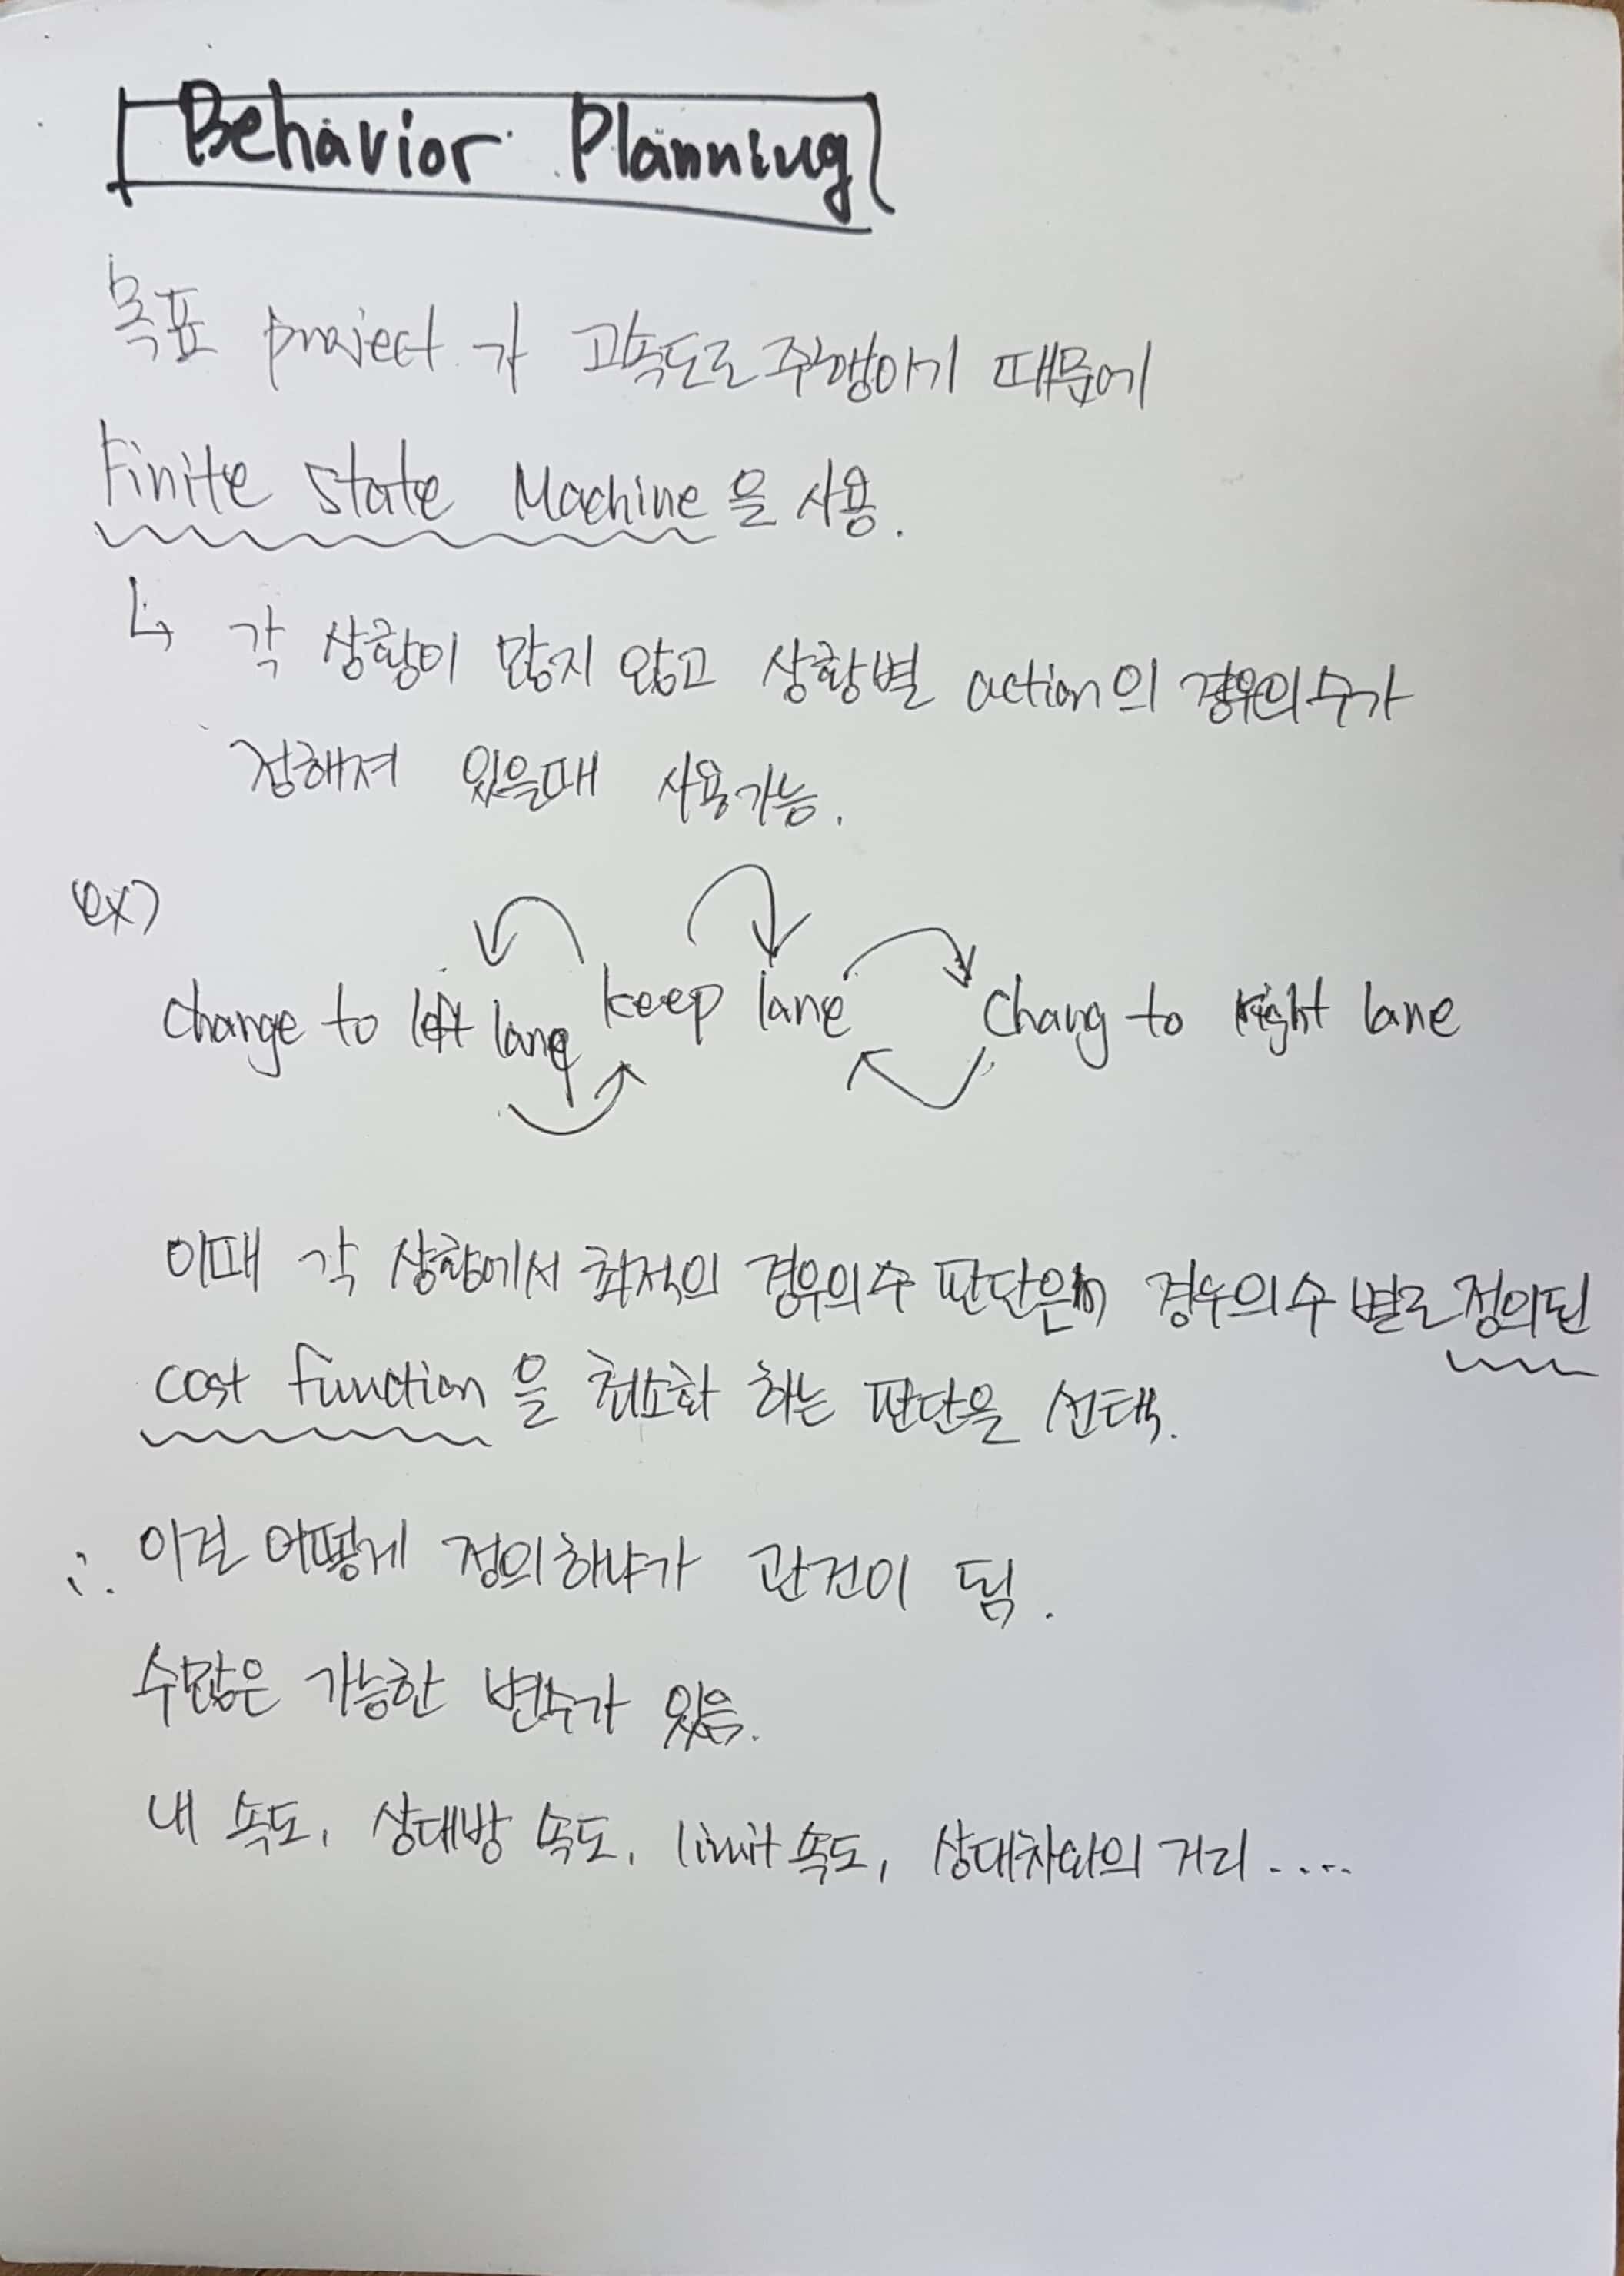 Behavior Planning
목표 project가 고속도로주행이기 때문에
Finite State Machine을 사용.
↳ 각 상황이 많지 않고 상황별 action의 경우의수가
정해져 있을때 사용가능.
ex)
change to left lane keep lane Chang to right lane
이때 각 상황에서 최적의 경우의수 판단은 경우의수 별로 정의된
cost function을 최소화 하는 판단을 선택.
∴ 이걸 어떻게 정의하냐가 관건이 됨.
수많은 가능한 변수가 있음.
내 속도, 상대방 속도, limit 속도, 상대차와의 거리.....